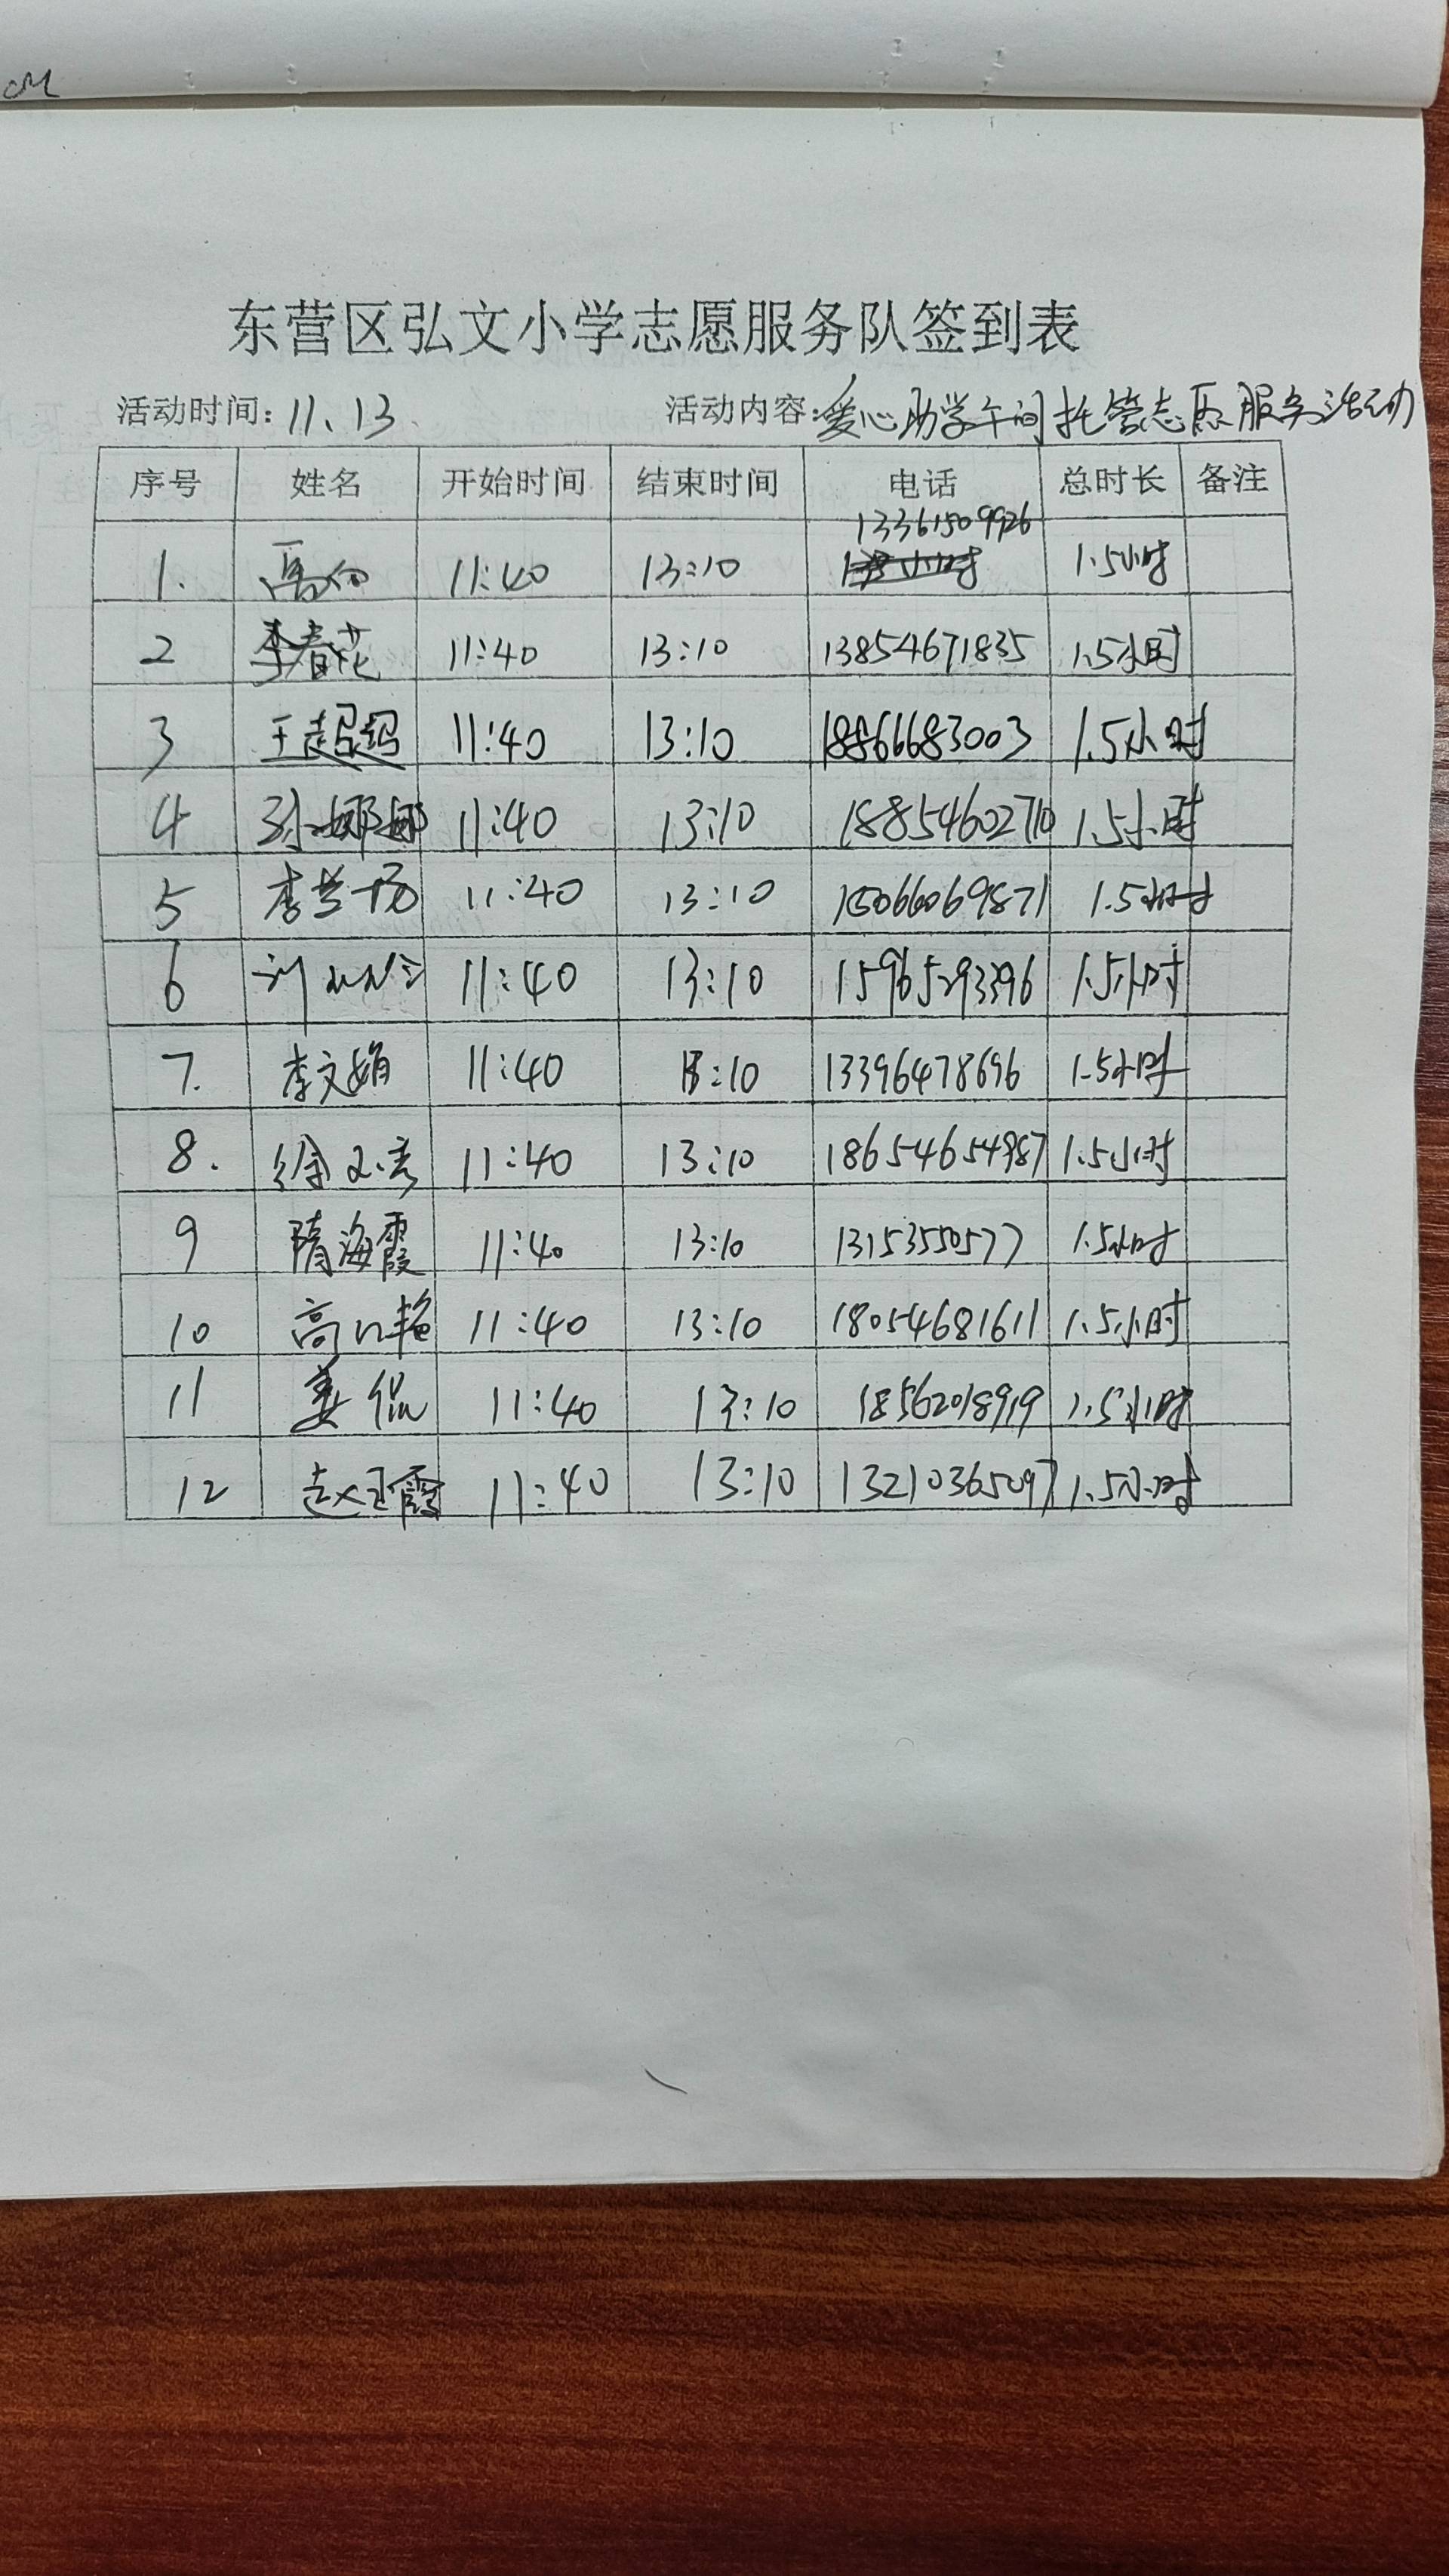 东营区弘文小学志愿服务队签到表
活动时间:11.13 活动内容:爱心助学午间托管志愿服务活动
序号 姓名 开始时间 结束时间 电话 总时长 备注
1. 11:40 13:10 13361509926 1.5小时
2 李春花 11:40 13:10 13854671835 1.5小时
3 王超超 11:40 13:10 18866683003 1.5小时
4 孙娜娜 11:40 13:10 18854602710 1.5小时
5 李兰杨 11:40 13:10 15066069871 1.5小时
6 刘 11:40 13:10 15965293396 1.5小时
7. 李文娟 11:40 13:10 13396478696 1.5小时
8. 徐文秀 11:40 13:10 18654654987 1.5小时
9 隋海霞 11:40 13:10 13153550577 1.5小时
10 高 艳 11:40 13:10 18054681611 1.5小时
11 姜侃 11:40 13:10 18562018919 1.5小时
12 赵 霞 11:40 13:10 13210365097 1.5小时